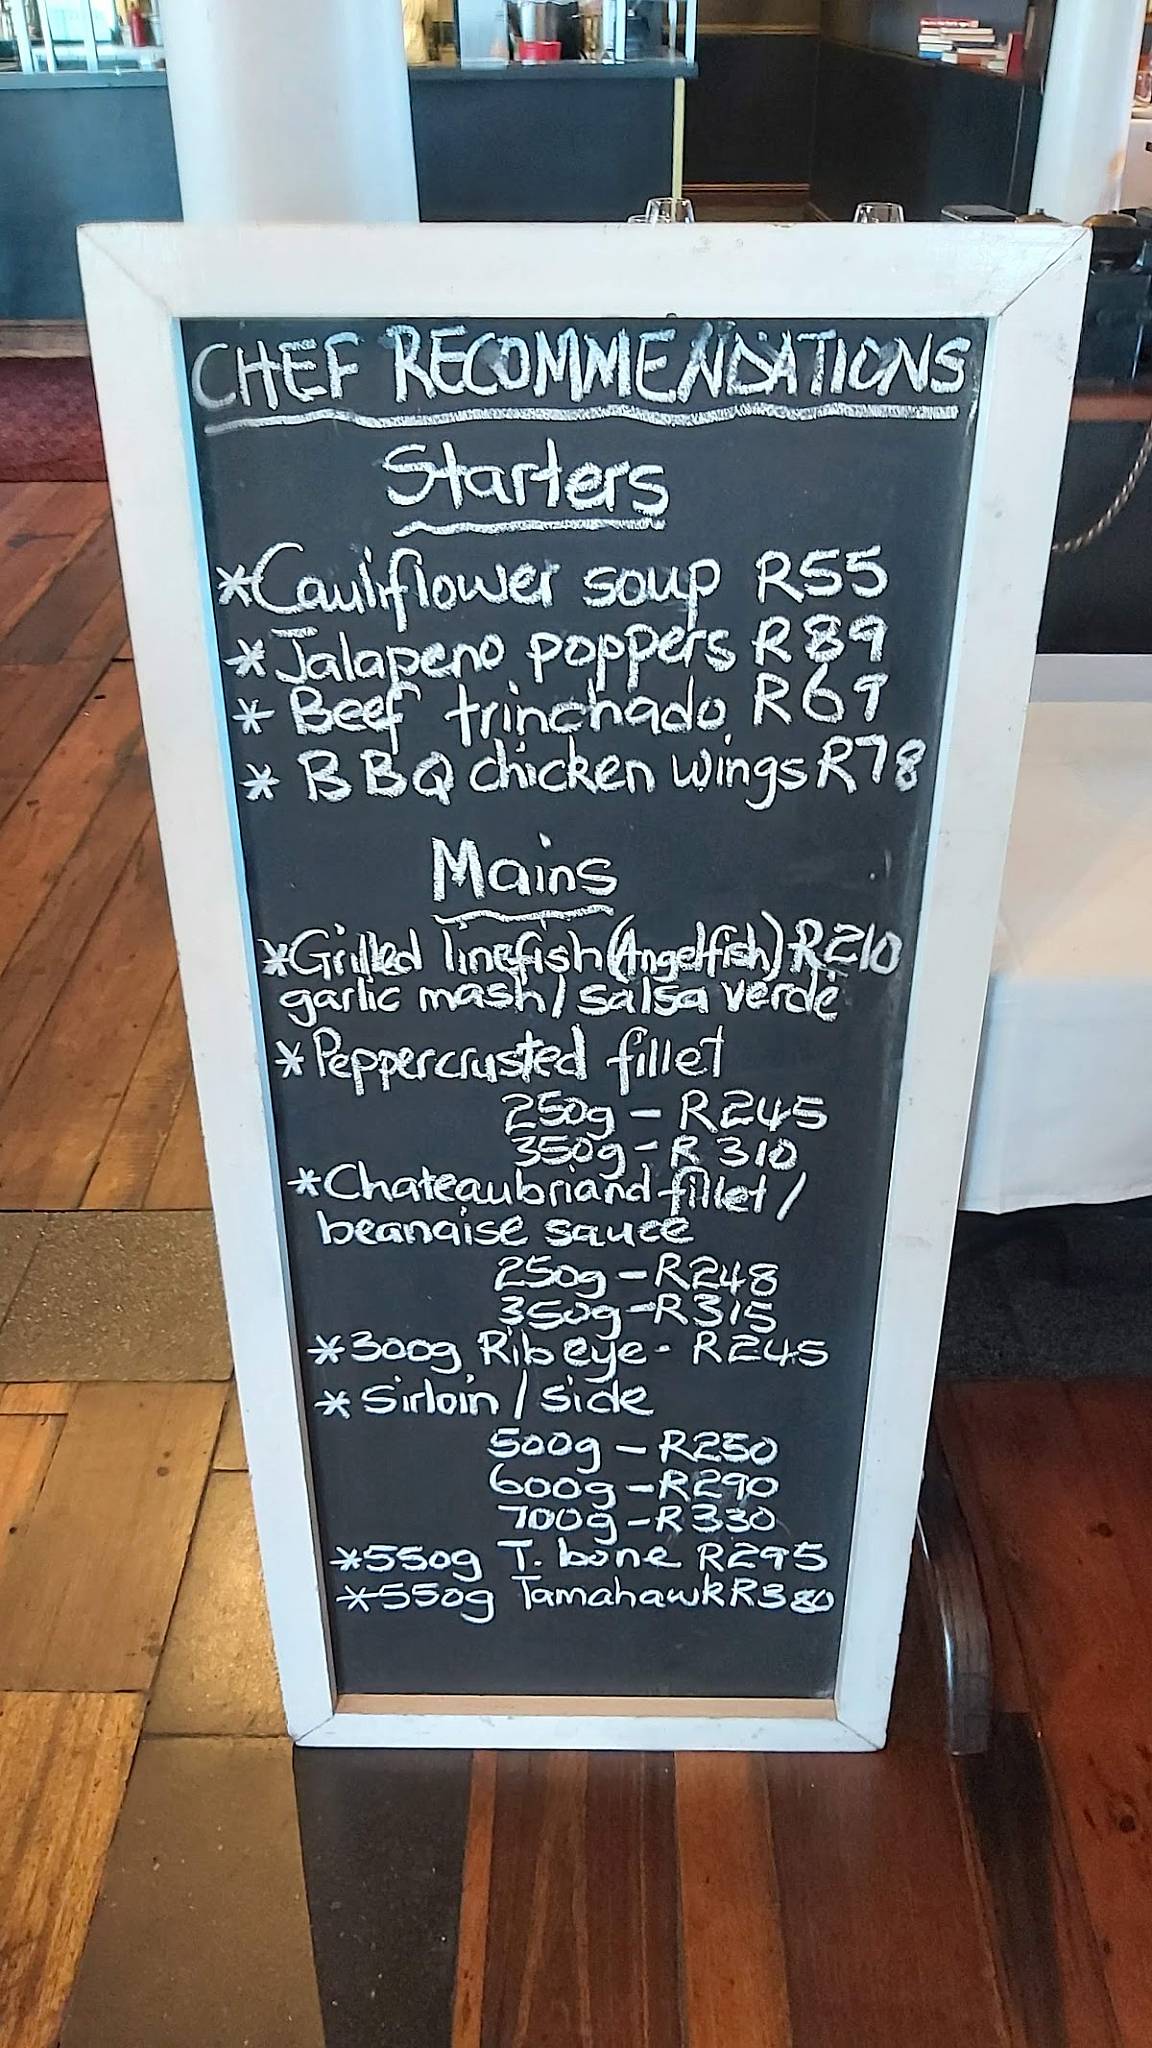 CHEF RECOMMENDATIONS
Starters
*Cauliflower soup R55
*Jalapeno poppers R89
* Beef trinchado R69
* BBQ chicken wings R78
Mains
*Grilled linefish (Angelfish) R210
garlic mash/salsa verde
*Peppercrusted fillet
250g - R245
350g - R310
*Chateaubriand fillet/
beanaise sauce
250g - R248
350g - R315
*300g Rib eye - R245
* Sirloin / side
500g - R250
600g - R290
700g - R330
*550g T. bone R295
*550g Tamahawk R380